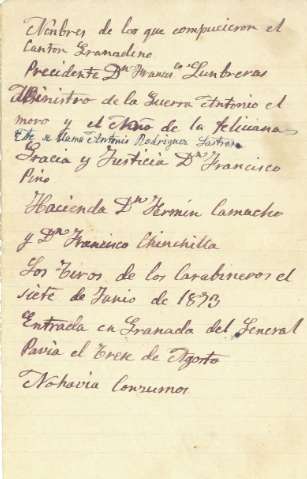 Nonbres de los que compucieron el
Canton Granadino
Precidente Dn Francisco Lunbreras
Ministro de la Guerra Antonio el
moro y el Niño de la feliciana
Este se llama Antonio Rodriguez
Gracia y Justicia Dn Francisco
Pino
Hacienda Dn Fermin Camacho
y Dn Francisco Chinchilla
Los tiros de los Carabineros el
siete de Junio de 1873
Entrada en Granada del General
Pavia el trece de Agosto
No havia Conzumos